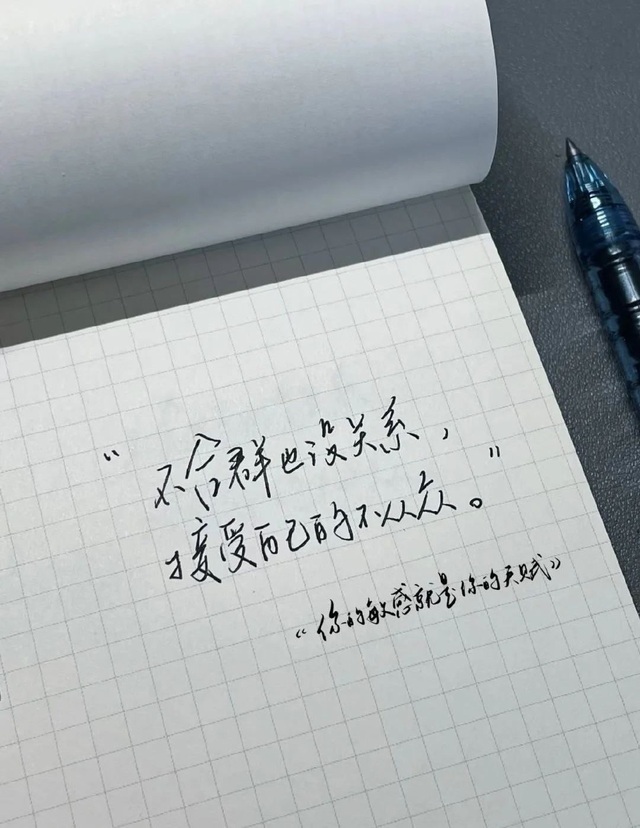 “不合群也没关系，
接受自己的不从众。”
《你的敏感就是你的天赋》